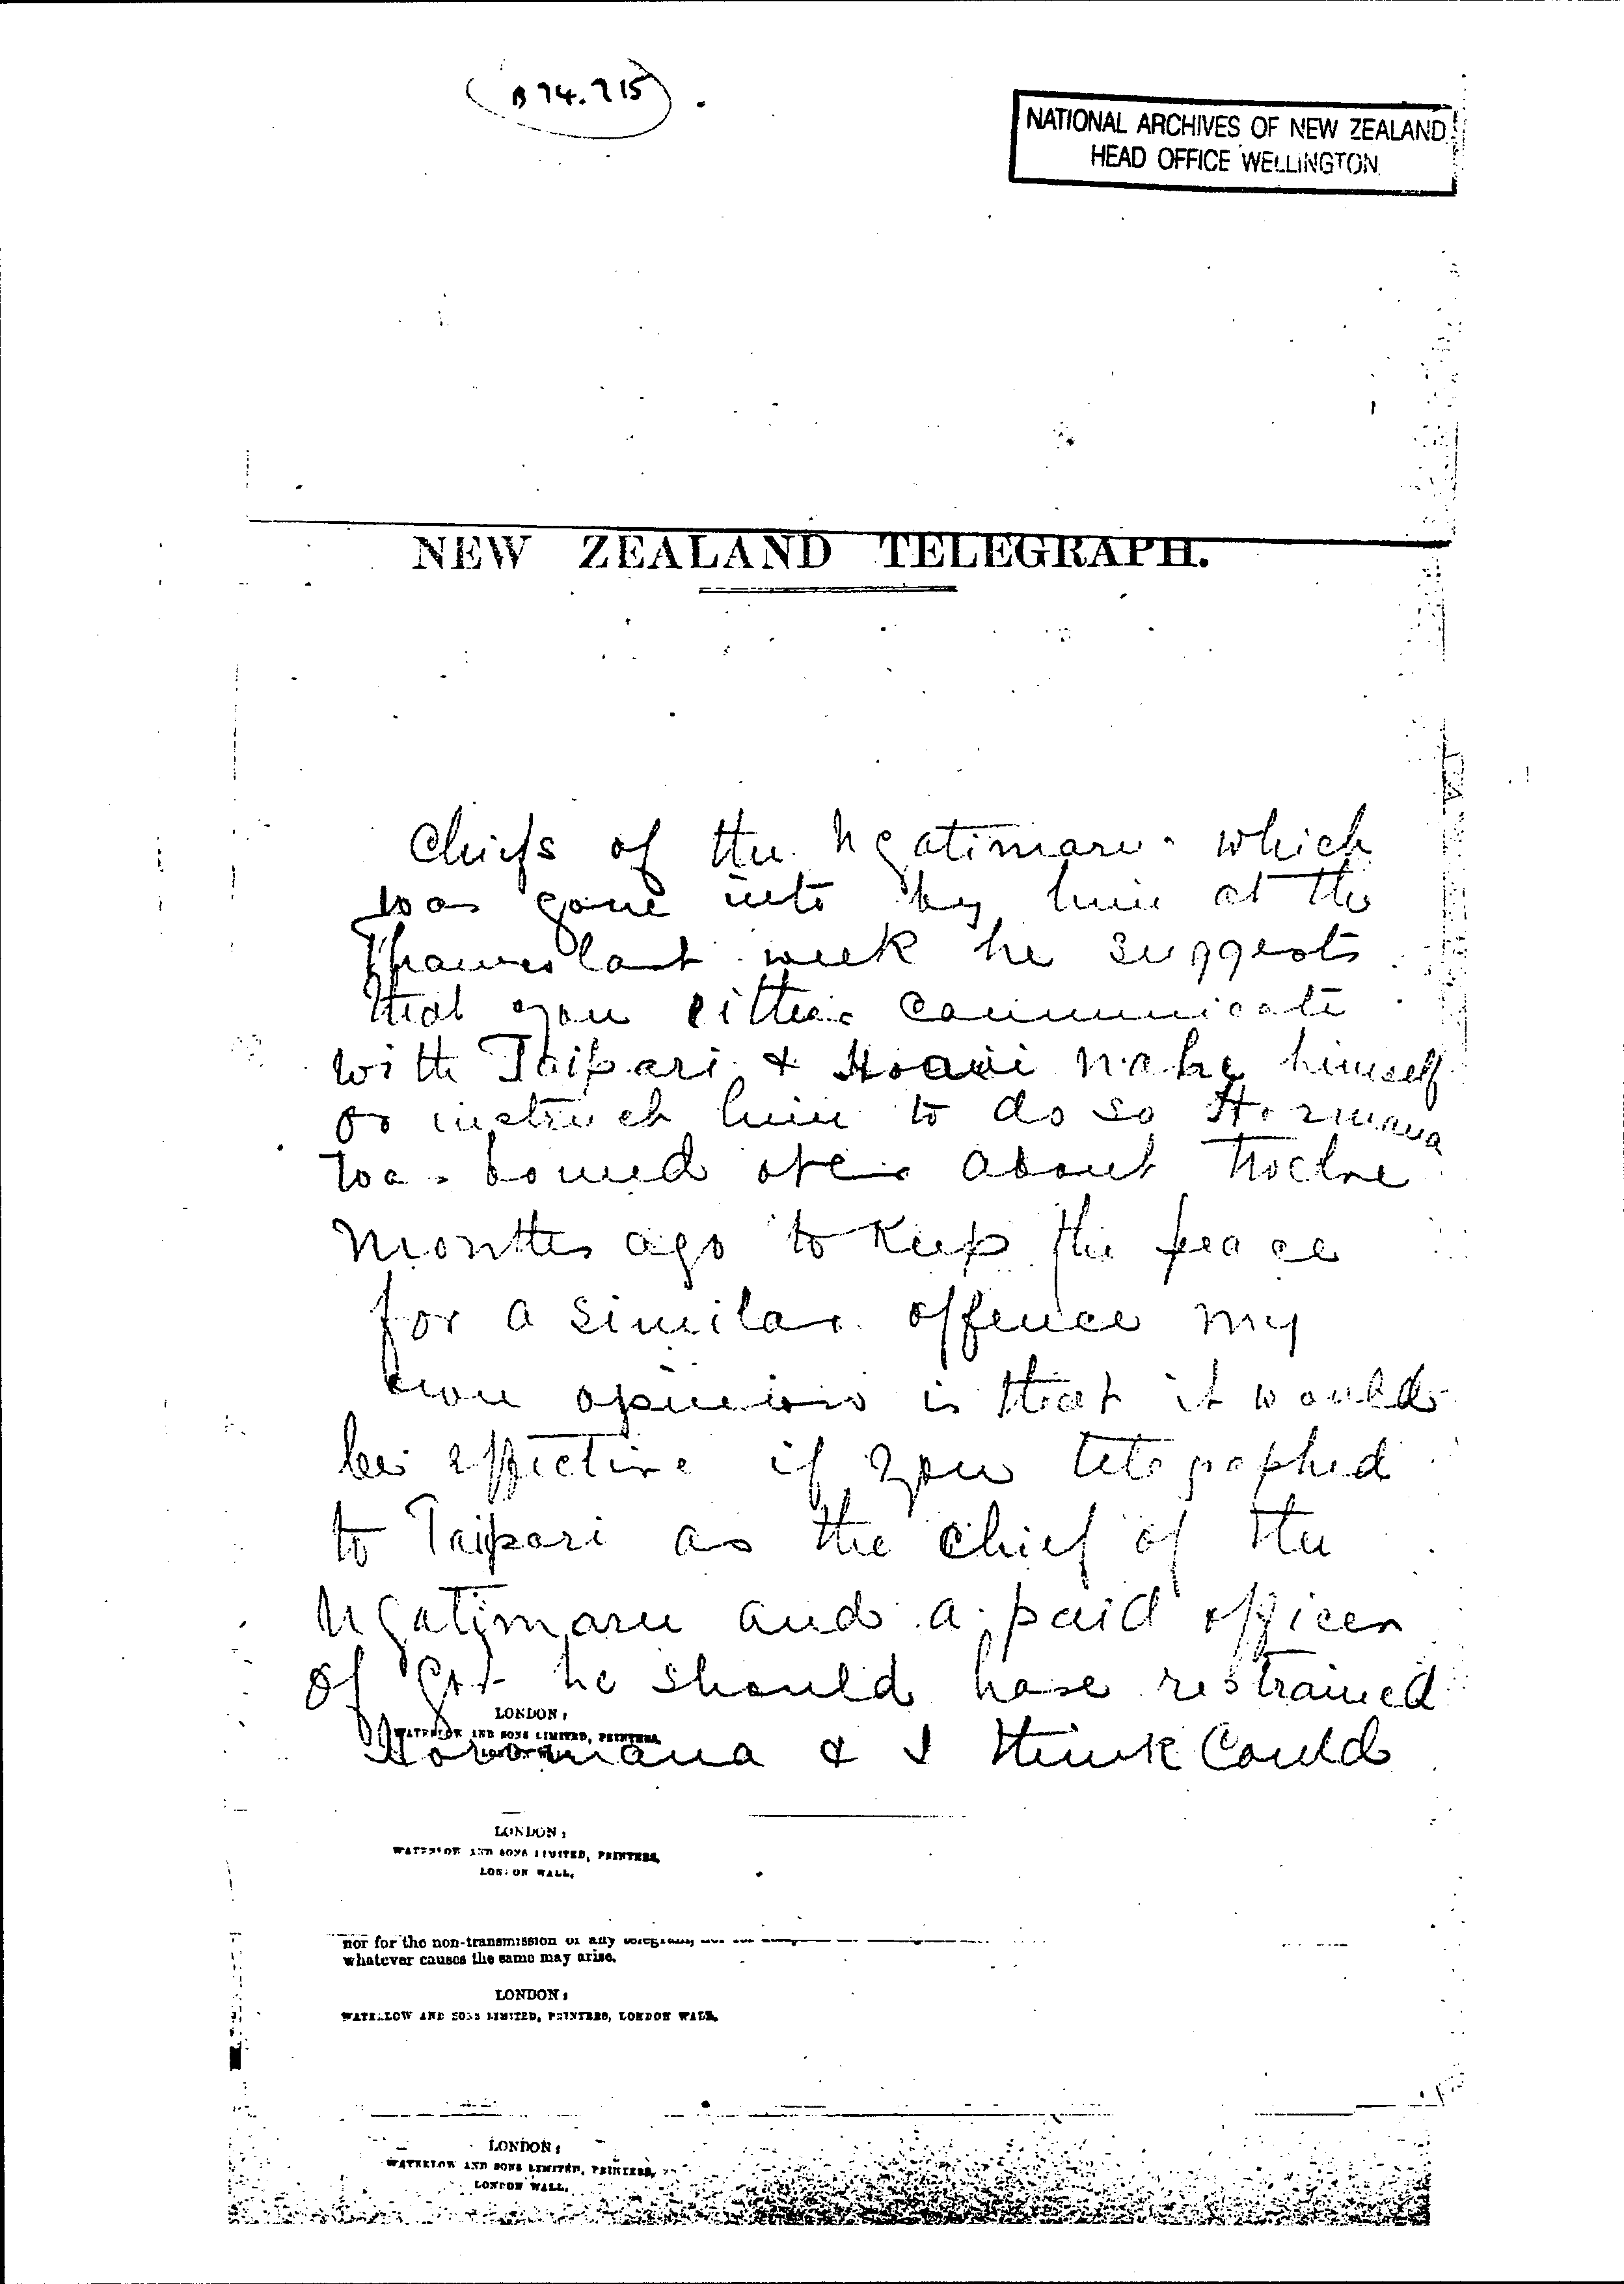 B 74.715
NATIONAL ARCHIVES OF NEW ZEALAND
HEAD OFFICE WELLINGTON
NEW ZEALAND TELEGRAPH.
Chiefs of the Ngatimaru which
was gone into by him at the
Thames last week he suggests
that you either communicate
with Taipari & Hoani Nahe himself
or instruct him to do so Horomana
was bound over about twelve
months ago to keep the peace
for a similar offence my
own opinion is that it would
be effective if you telegraphed
to Taipari as the chief of the
Ngatimaru and a paid officer
of Govt he should have restrained
LONDON:
WATERLOW AND SONS LIMITED, PRINTERS,
Horomana & I think could
LONDON:
WATERLOW AND SONS LIMITED, PRINTERS,
LONDON WALL.
nor for the non-transmission of any telegram,
whatever causes the same may arise.
LONDON:
WATERLOW AND SONS LIMITED, PRINTERS, LONDON WALL.
LONDON:
WATERLOW AND SONS LIMITED, PRINTERS,
LONDON WALL.